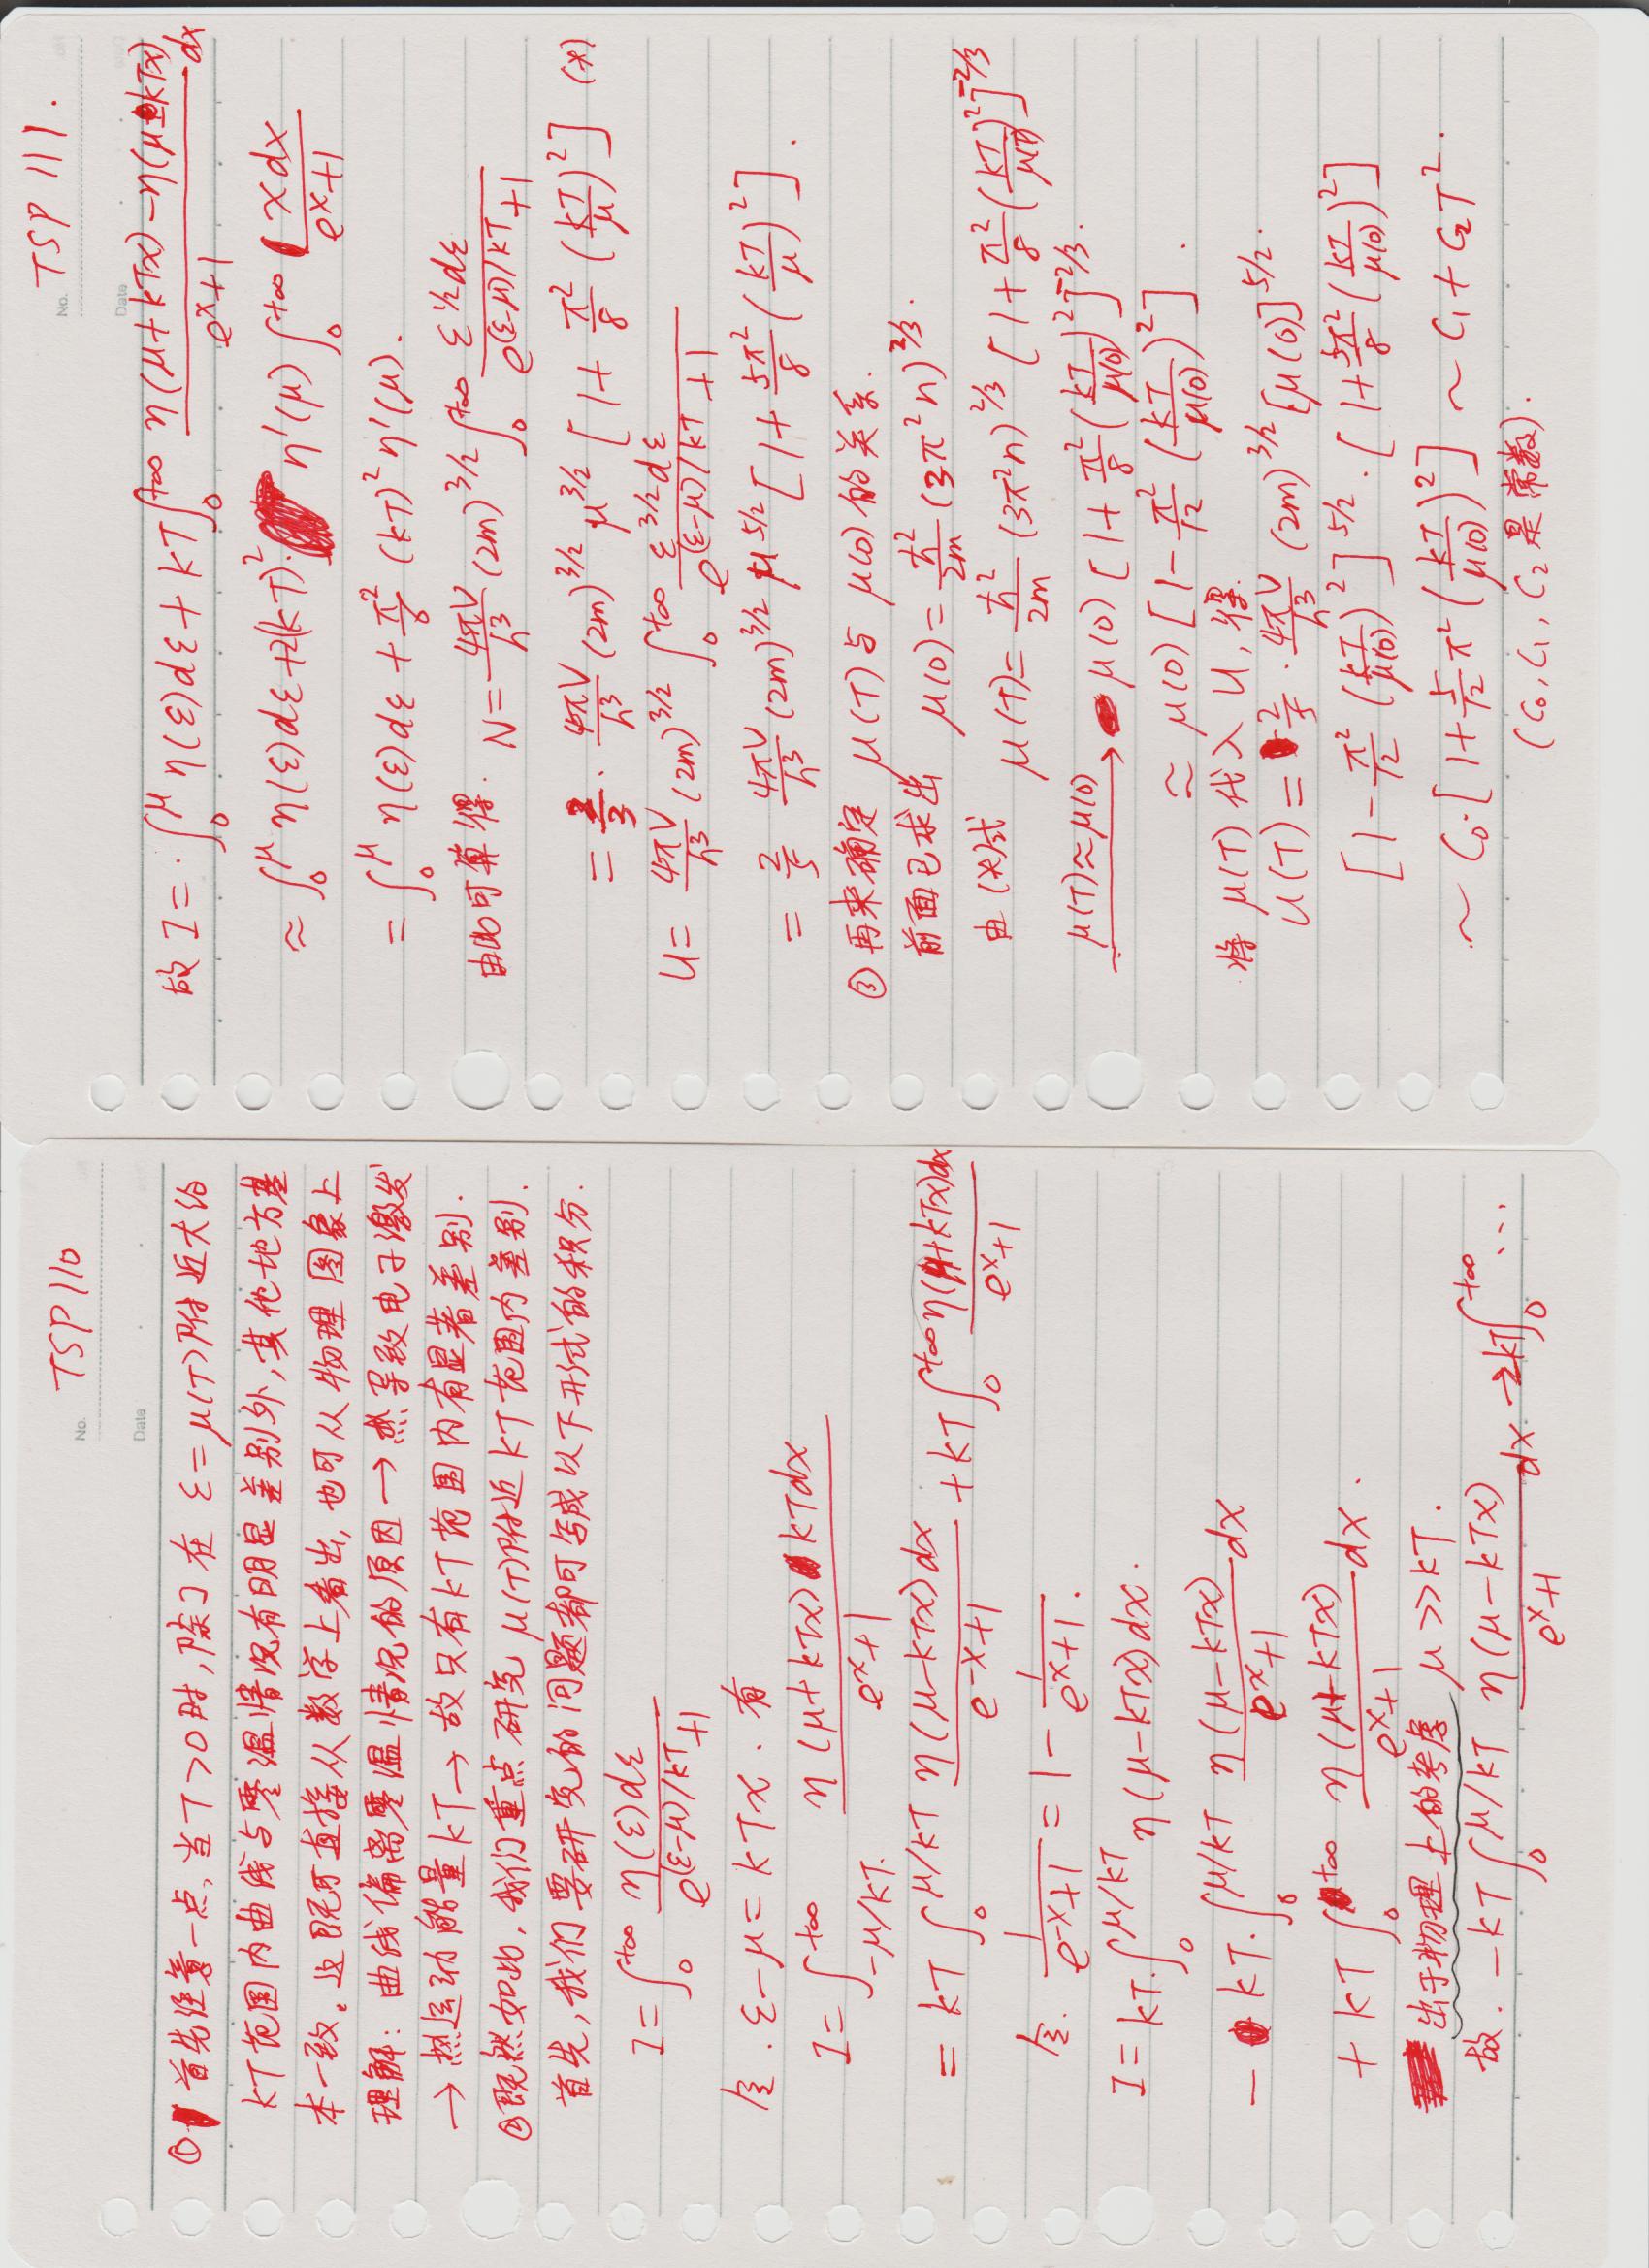 No. TSP 110
Date
① 首先注意一点,当 T>0 时,除了在 ε=μ(T) 附近大约
kT 范围内曲线与零温情况有明显差别外,其他地方基
本一致。这既可直接从数学上看出,也可从物理图象上
理解:曲线偏离零温情况的原因 → 热导致电子激发
→ 热运动能量 kT → 故只有 kT 范围内有显著差别.
② 既然如此,我们重点研究 μ(T) 附近 kT 范围内差别.
首先,我们要研究的问题都可写成以下形式的积分.
I = ∫_0^{+∞} η(ε)dε / (e^{(ε-μ)/kT}+1)
令. ε-μ = kTx. 有
I = ∫_{-μ/kT.}^{+∞} η(μ+kTx) kTdx / (e^x+1)
= kT ∫_0^{μ/kT} η(μ-kTx)dx / (e^{-x}+1) + kT ∫_0^{+∞} η(μ+kTx)dx / (e^x+1)
令. 1/(e^{-x}+1) = 1 - 1/(e^x+1).
I = kT.∫_0^{μ/kT} η(μ-kTx)dx.
- kT.∫_0^{μ/kT} η(μ-kTx)/(e^x+1) dx
+ kT ∫_0^{+∞} η(μ+kTx)/(e^x+1) dx.
出于物理上的考虑 μ>>kT.
故. -kT ∫_0^{μ/kT} η(μ-kTx)/(e^x+1) dx → -kT∫_0^{+∞} ...
No. TSP 111.
Date
故 I = ∫_0^μ η(ε)dε + kT∫_0^{+∞} [η(μ+kTx)-η(μ-kTx)]/(e^x+1) dx
≈ ∫_0^μ η(ε)dε + 2(kT)^2. η'(μ) ∫_0^{+∞} xdx/(e^x+1)
= ∫_0^μ η(ε)dε + π²/6 (kT)² η'(μ).
由此可算得. N = 4πV/h³ (2m)^{3/2} ∫_0^{+∞} ε^{1/2}dε / (e^{(ε-μ)/kT}+1)
= 2/3 · 4πV/h³ (2m)^{3/2} μ^{3/2} [1 + π²/8 (kT/μ)²] (*)
U = 4πV/h³ (2m)^{3/2} ∫_0^{+∞} ε^{3/2}dε / (e^{(ε-μ)/kT}+1)
= 2/5 4πV/h³ (2m)^{3/2} μ^{5/2} [1 + 5π²/8 (kT/μ)²].
③ 再来确定 μ(T) 与 μ(0) 的关系.
前面已求出 μ(0) = ħ²/2m (3π²n)^{2/3}.
由(*)式 μ(T) = ħ²/2m (3π²n)^{2/3} [1 + π²/8 (kT/μ(T))²]^{-2/3}
μ(T)≈μ(0) → μ(0) [1 + π²/8 (kT/μ(0))²]^{-2/3}.
≈ μ(0) [1 - π²/12 (kT/μ(0))²].
将 μ(T) 代入 U, 得.
U(T) = 2/5 · 4πV/h³ (2m)^{3/2} [μ(0)]^{5/2}.
[1 - π²/12 (kT/μ(0))²]^{5/2} · [1 + 5π²/8 (kT/μ(0))²]
~ C₀·[1 + 5/12 π² (kT/μ(0))²] ~ C₁ + C₂T².
(C₀, C₁, C₂ 是常数).